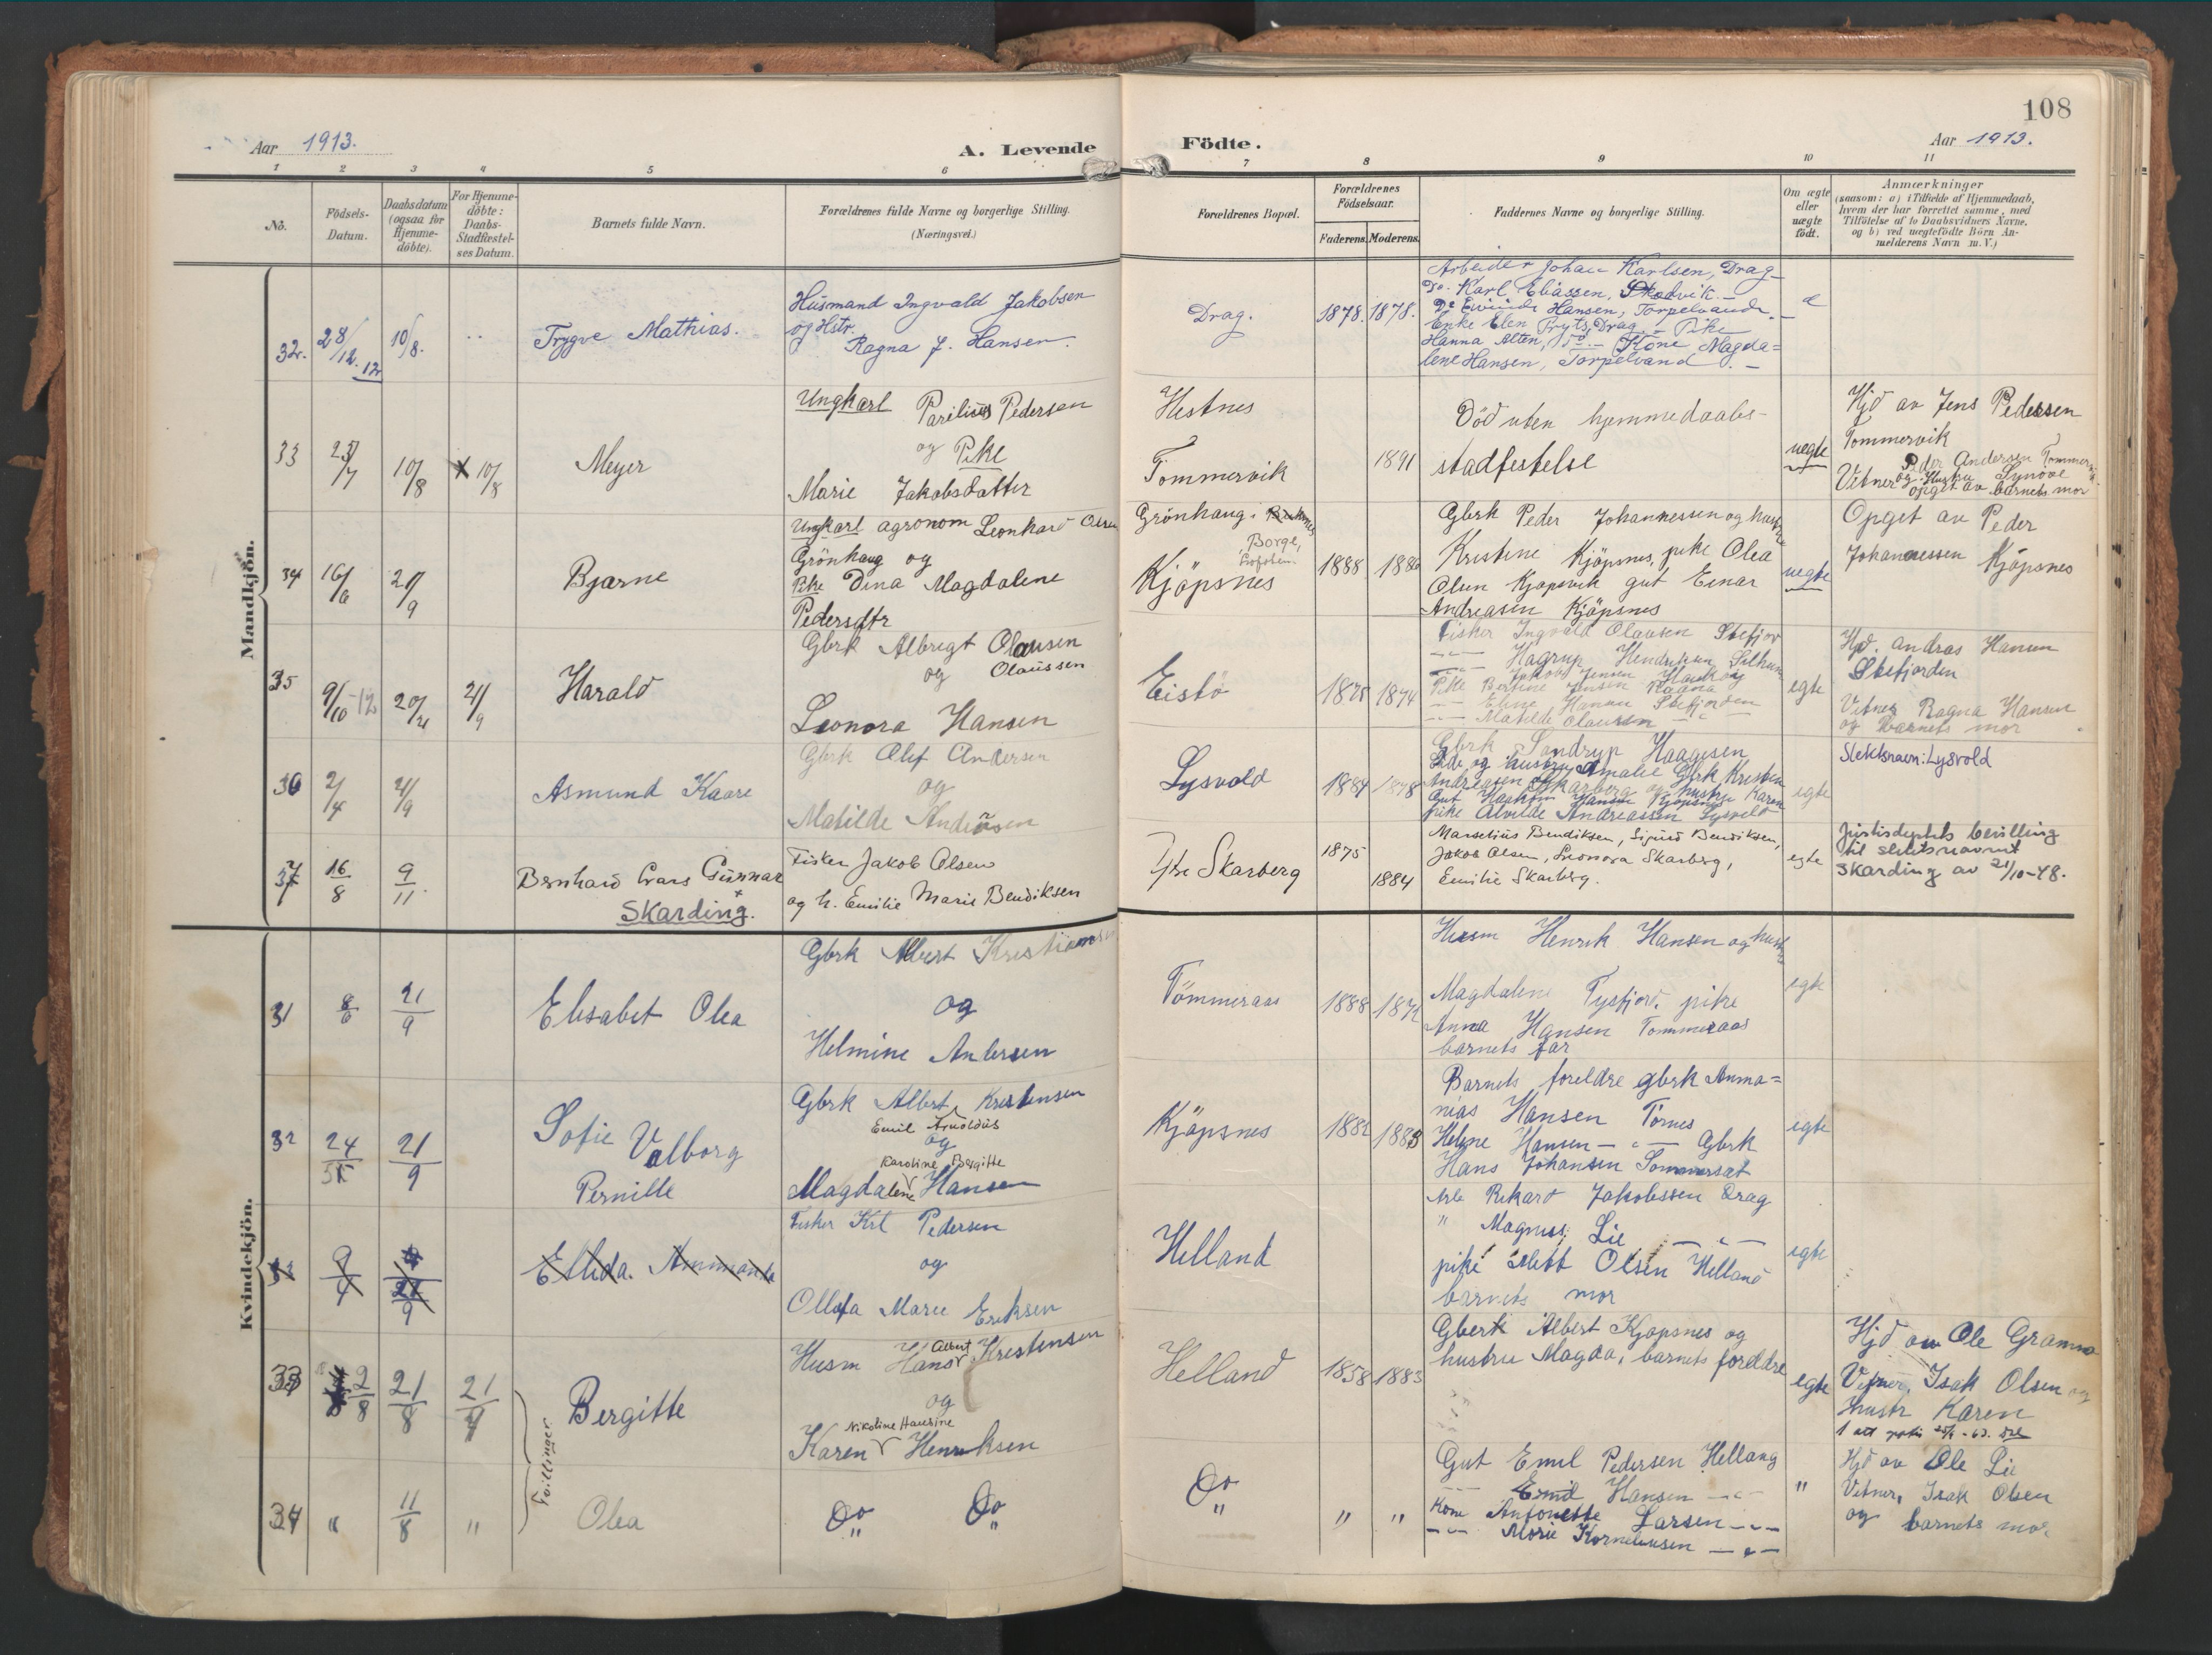 108
Aar 1913.
A. Levende
Födte.
Aar 1913.
1 2 3 4 5 6 7 8 9 10 11
No.
Födsels-
Datum.
Daabsdatum
(ogsaa for
Hjemme-
döbte).
For Hjemme-
döbte:
Daabs-
Stadfæstel-
ses Datum.
Barnets fulde Navn.
Forældrenes fulde Navne og borgerlige Stilling.
(Næringsvei.)
Forældrenes Bopæl.
Forældrenes
Födselsaar.
Faderens. Moderens.
Faddernes Navne og borgerlige Stilling.
Om ægte
eller
uægte
födt.
Anmærkninger
(saasom: a) i Tilfælde af Hjemmedaab,
hvem der har forrettet samme, med
Tilföielse af to Daabsvidners Navne,
og b) ved uægtefödte Börn An-
melderens Navn m.V.)
Mandkjön.
32.
28/12. 12
10/8.
Trygve Mathias.
Husmand Ingvald Jakobsen
og Hstr.
Ragna J. Hansen.
Drag.
1878. 1878.
Arbeider Johan Karlsen, Drag
Do. Karl Eliassen, Skodvik.
Do Eivind Hansen, Torpelvand.
Enke Elen Fryts, Drag. - Pike
Hanna Alten, Do. - Kone Magda=
lene Hansen, Torpelvand.
33
10/8
x 10/8
Meyer
Ungkarl Parelius Pedersen
og Pike
Marie Jakobsdatter
Hestnes
Tommervik
1891
Död uten hjemmedaabs-
stadfestelse
uegte
Hjd av Jens Pedersen
Tommervik
Peder Andersen
Vitner og Hustru Synöve
opget av barnets mor
34
16/6
21/9
Bjarne
Ungkarl agronom Leonhard Olsen
Grönhaug og
Pike Dina Magdalene
Pedersdtr
Grönhaug i
Borge,
Lofoten
Kjöpsnes
1888
Gbrk Peder Johannessen og hustru
Kristine Kjöpsnes, pike Olea
Olsen Kjopsvik gut Einar
Andreasen Kjöpsnes
uegte
Opget av Peder
Johannessen Kjöpsnes
35
9/10 - 12
21/9
Harald
Gbrk Albregt Olausen
og Olaussen
Leonora Hansen
Eistö
1874
Fisker Ingvald Olausen Stefjor
Hagrup Hendriksen
Jensen
Pike Bertine Jensen
Eline Hansen Stefjorden
Matilde Olausen
egte
Hjd. Andras Hansen
Stefjorden
Vitner Ragna Hansen
og barnets mor
36
2/4
21/9
Asmund Kaare
Gbrk Olef Andersen
og
Matilde
Lysvold
1884
Gbrk Sandrup Haagesen
og hustru Amalie Gbrk Kristen
Andreasen Skarberg og hustru Karen
Gut Haakon Hansen Kjöpsnes
pike Alvilde Andreassen Lysvold
egte
Slektsnavn: Lysvold
37
16/8
9/11.
Bernhard Lars Gunnar
+
SKarding.
Fisker Jakob Olsen
og h. Emilie Marie Bendiksen
Ytre Skarberg
1875
1884
Marselius Bendiksen, Sigurd Bendiksen,
Jakob Olsen, Leonora Skarberg,
Emilie Skarberg.
egte
Justisdeptets bevilling
til slektsnavnet
Skarding av 21/10-48.
Kvindekjön.
31
8/6
21/9
Elisabet Olea
Gbrk Albert Kristiansen
og
Helmine Andersen
Tömmeraas
1888
Husm Henrik Hansen og hustru
Magdalene Tysfjord, pike
Anna Hansen Tommeraas
barnets far
egte
32
24/5
21/9
Sofie Valborg
Pernille
Gbrk Albert Kristensen
Emil Arnoldus
og
Karoline Bergitte
Magdalene Hansen
Kjöpsnes
1882 1883
Barnets foreldre gbrk Anma=
nias Hansen Tornes
Helene Hansen - " - Gbrk
Hans Johansen Sommerset
egte
9/4
21/9
Ellida. Ammanda
Fisker Krl Pedersen
og
Ollefa Marie Eriksen
Helland
Arb Rikard Jakobssen Drag
" Magnus Lie - " -
pike Olsen Helland
barnets mor
egte
33
2/8
21/8
21/9
Tvillinger
Bergitte
Husm Hans Albert Kristensen
og
Nikoline Hansine
Karen Henriksen
Helland
1858 1883
Gberk Albert Kjopsnes og
hustru Magda, barnets foreldre
egte
Hjd av Ole Gramno
Vitner, Isak Olsen og
hustr Karen
34
"
11/8
"
Olea
Do Do
" "
Do
"
" "
Gut Emil Pedersen Hellang
Emil Hansen - " -
Kone Antonette Larsen - " -
Marie Korneliussen - " -
"
Hjd av Ole Lie
Vitner, Isak Olsen
og barnets mor